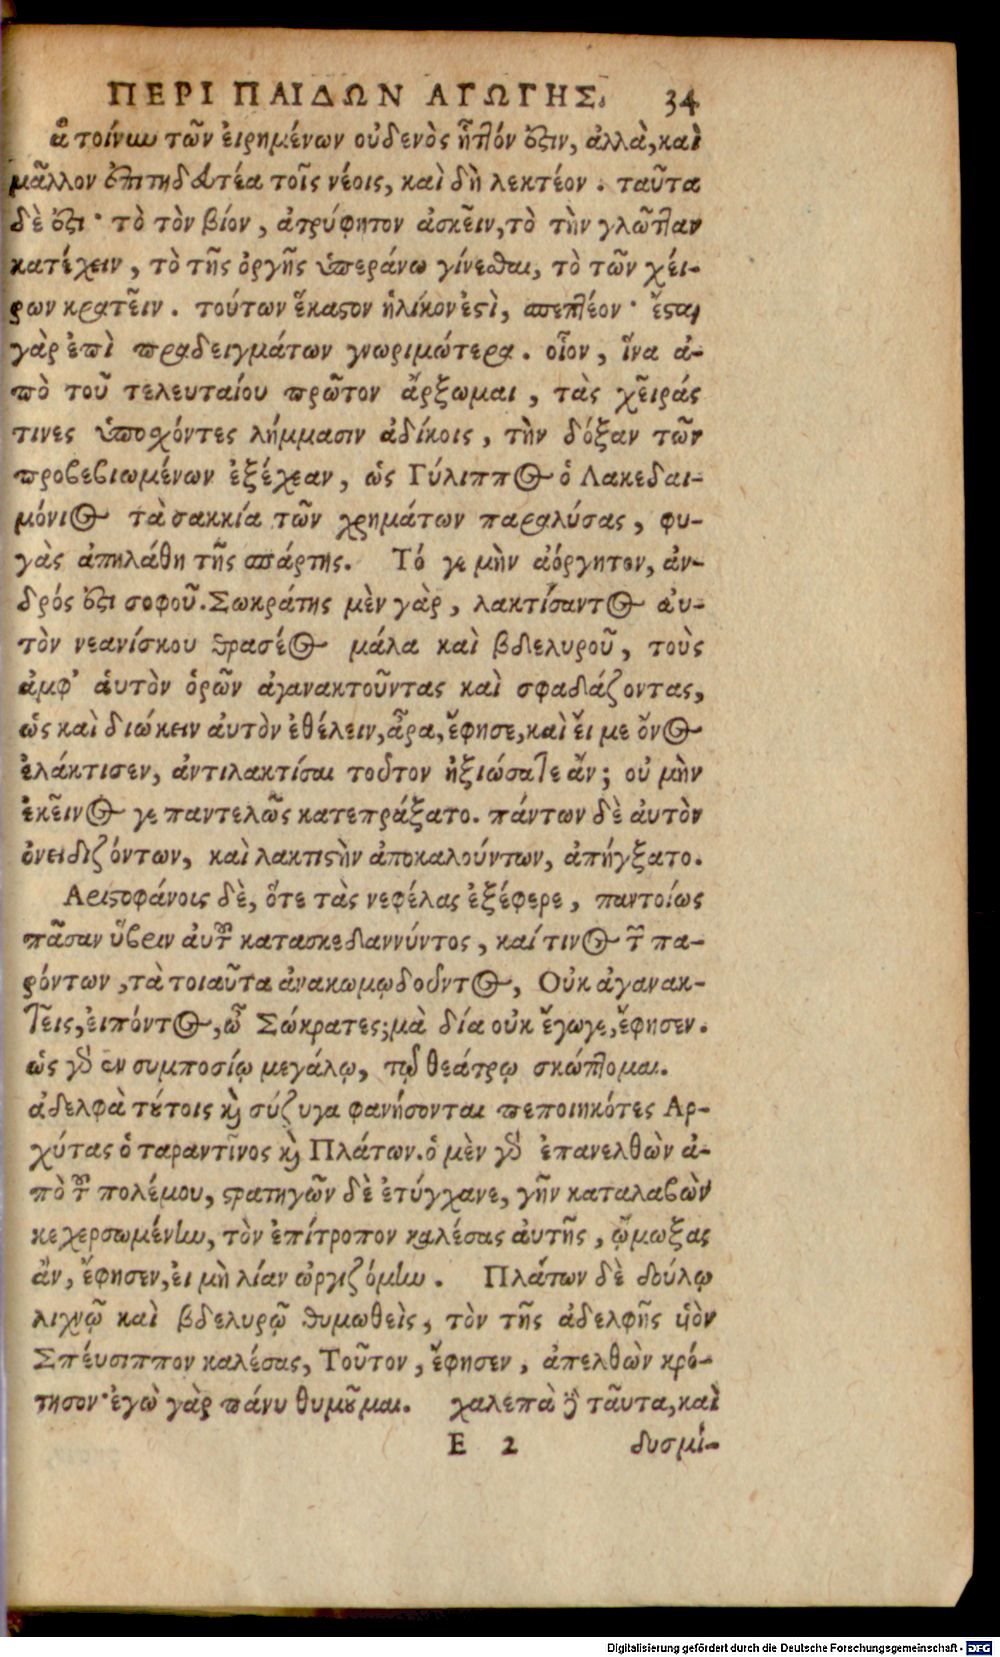 ΠΕΡΙ ΠΑΙΔΩΝ ΑΓΩΓΗΣ. 34
ἃ τοίνυν τῶν εἰρημένων οὐδενὸς ἧττόν ἐστιν, ἀλλὰ, καὶ
μᾶλλον ἐπιτηδευτέα τοῖς νέοις, καὶ δὴ λεκτέον. ταῦτα
δὲ ἐστι· τὸ τὸν βίον, ἀτρύφητον ἀσκεῖν, τὸ τὴν γλῶτταν
κατέχειν, τὸ τῆς ὀργῆς ὑπεράνω γίνεσθαι, τὸ τῶν χει-
ρων κρατεῖν. τούτων ἕκαστον ἡλίκον ἐστὶ, σκεπτέον· ἔσται
γὰρ ἐπὶ παραδειγμάτων γνωριμώτερα. οἷον, ἵνα ἀ-
πὸ τοῦ τελευταίου πρῶτον ἄρξωμαι, τὰς χεῖράς
τινες ὑποσχόντες λήμμασιν ἀδίκοις, τὴν δόξαν τῶν
προβεβιωμένων ἐξέχεαν, ὡς Γύλιππος ὁ Λακεδαι-
μόνιος τὰ σακκία τῶν χρημάτων παραλύσας, φυ-
γὰς ἀπηλάθη τῆς σπάρτης. Τό γε μὴν ἀόργητον, ἀν-
δρός ἐστι σοφοῦ. Σωκράτης μὲν γὰρ, λακτίσαντος αὐ-
τὸν νεανίσκου θρασέος μάλα καὶ βδελυροῦ, τοὺς
ἀμφ' αὑτὸν ὁρῶν ἀγανακτοῦντας καὶ σφαδάζοντας,
ὡς καὶ διώκειν αὐτὸν ἐθέλειν, ἆρα, ἔφησε, καὶ εἴ με ὄνος
ἐλάκτισεν, ἀντιλακτίσαι τοῦτον ἠξιώσατε ἄν; οὐ μὴν
ἐκεῖνος γε παντελῶς κατεπράξατο. πάντων δὲ αὐτὸν
ὀνειδιζόντων, καὶ λακτιστὴν ἀποκαλούντων, ἀπήγξατο.
Αριστοφάνοις δὲ, ὅτε τὰς νεφέλας ἐξέφερε, παντοίως
πᾶσαν ὕβριν αὐτοῦ κατασκεδαννύντος, καί τινος τῶν πα-
ρόντων, τὰ τοιαῦτα ἀνακωμῳδοῦντος, Οὐκ ἀγανακ-
τεῖς, εἰπόντος, ὦ Σώκρατες; μὰ δία οὐκ ἔγωγε, ἔφησεν.
ὡς γὰρ ἐν συμποσίῳ μεγάλῳ, τῷ θεάτρῳ σκώπτομαι.
ἀδελφὰ τούτοις καὶ σύζυγα φανήσονται πεποιηκότες Αρ-
χύτας ὁ ταραντῖνος καὶ Πλάτων. ὁ μὲν γὰρ ἐπανελθὼν ἀ-
πὸ τοῦ πολέμου, στρατηγῶν δὲ ἐτύγχανε, γῆν καταλαβὼν
κεχερσωμένην, τὸν ἐπίτροπον καλέσας αὐτῆς, ᾤμωξας
ἂν, ἔφησεν, εἰ μὴ λίαν ὠργιζόμην. Πλάτων δὲ δούλῳ
λιχνῷ καὶ βδελυρῷ θυμωθεὶς, τὸν τῆς ἀδελφῆς υἱὸν
Σπεύσιππον καλέσας, Τοῦτον, ἔφησεν, ἀπελθὼν κρό-
τησον· ἐγὼ γὰρ πάνυ θυμοῦμαι. χαλεπὰ δὲ ταῦτα, καὶ
E 2 δυσμί-
Digitalisierung gefördert durch die Deutsche Forschungsgemeinschaft - DFG